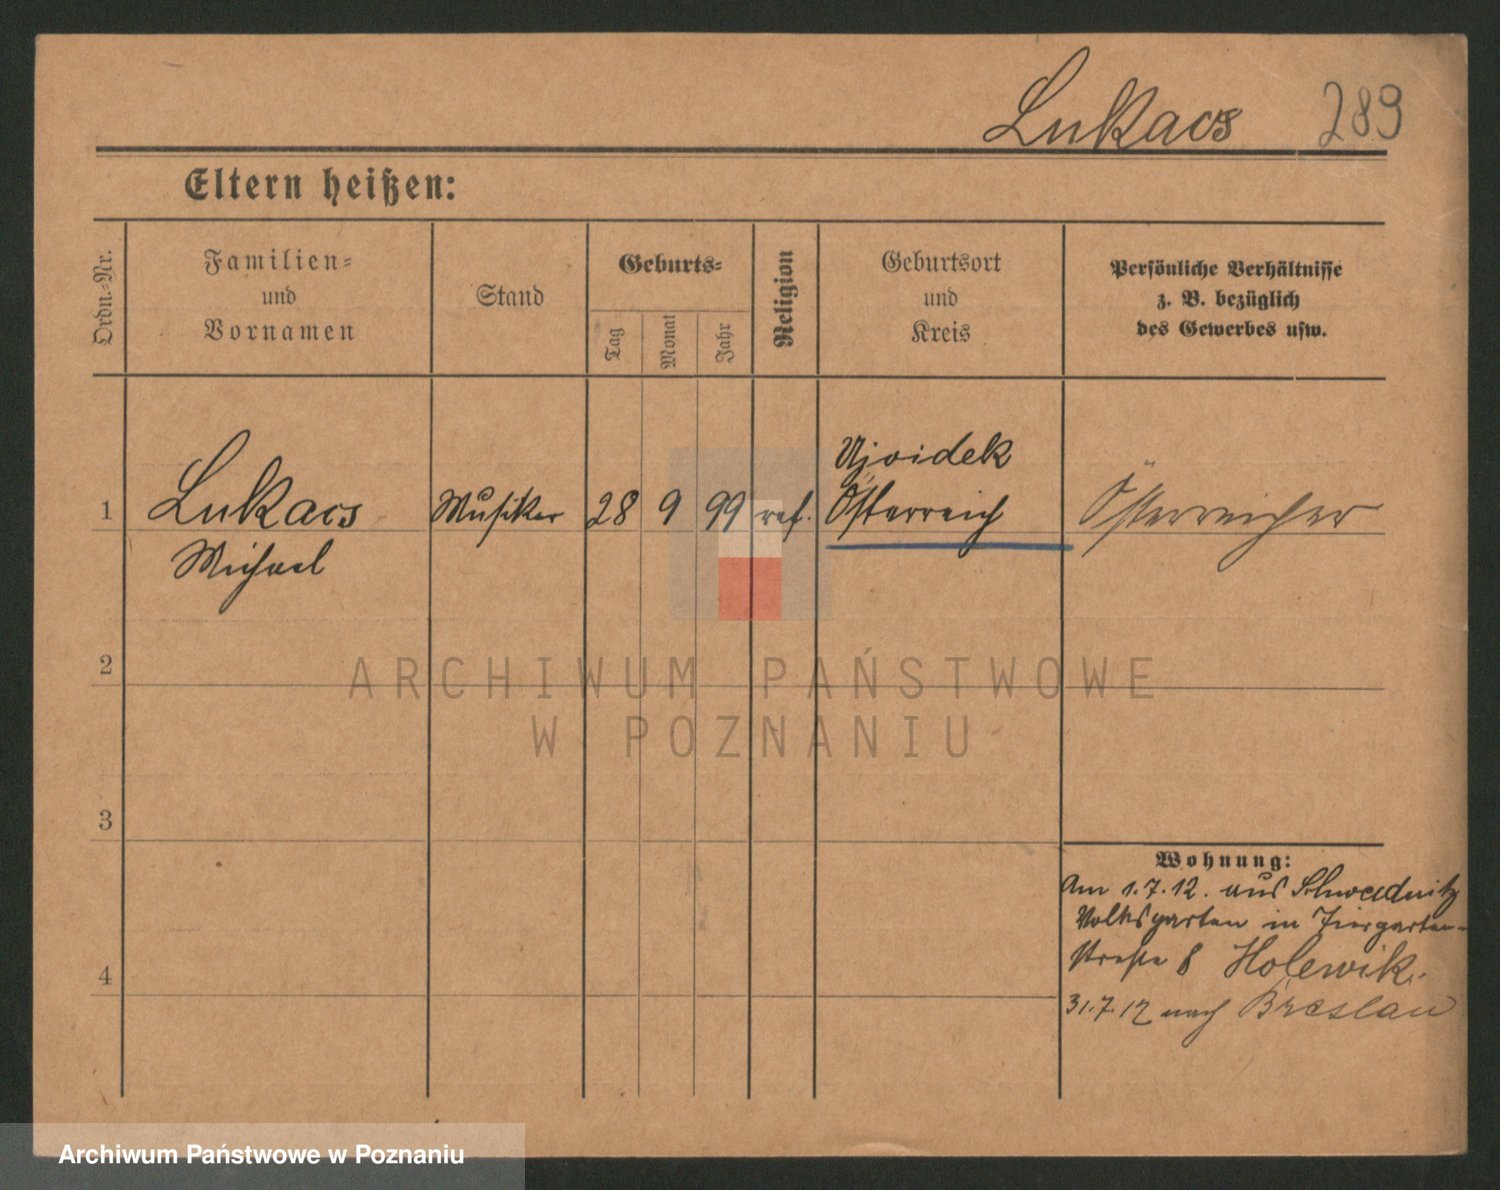 Lukacs 289
Eltern heißen:
Ordn.-Nr.
Familien-
und
Vornamen
Stand
Geburts-
Tag
Monat
Jahr
Religion
Geburtsort
und
Kreis
Persönliche Verhältnisse
z. B. bezüglich
des Gewerbes usw.
1 Lukacs Musiker 28 9 99 ref. Ujvidek
Österreich Österreicher
Michael
2
3
4
Wohnung:
Am 1.7.12. aus Schweidnitz
Volksgarten in Tiergarten-
straße 8 Holewik.
31.7.12 nach Breslau
ARCHIWUM PAŃSTWOWE
W POZNANIU
Archiwum Państwowe w Poznaniu